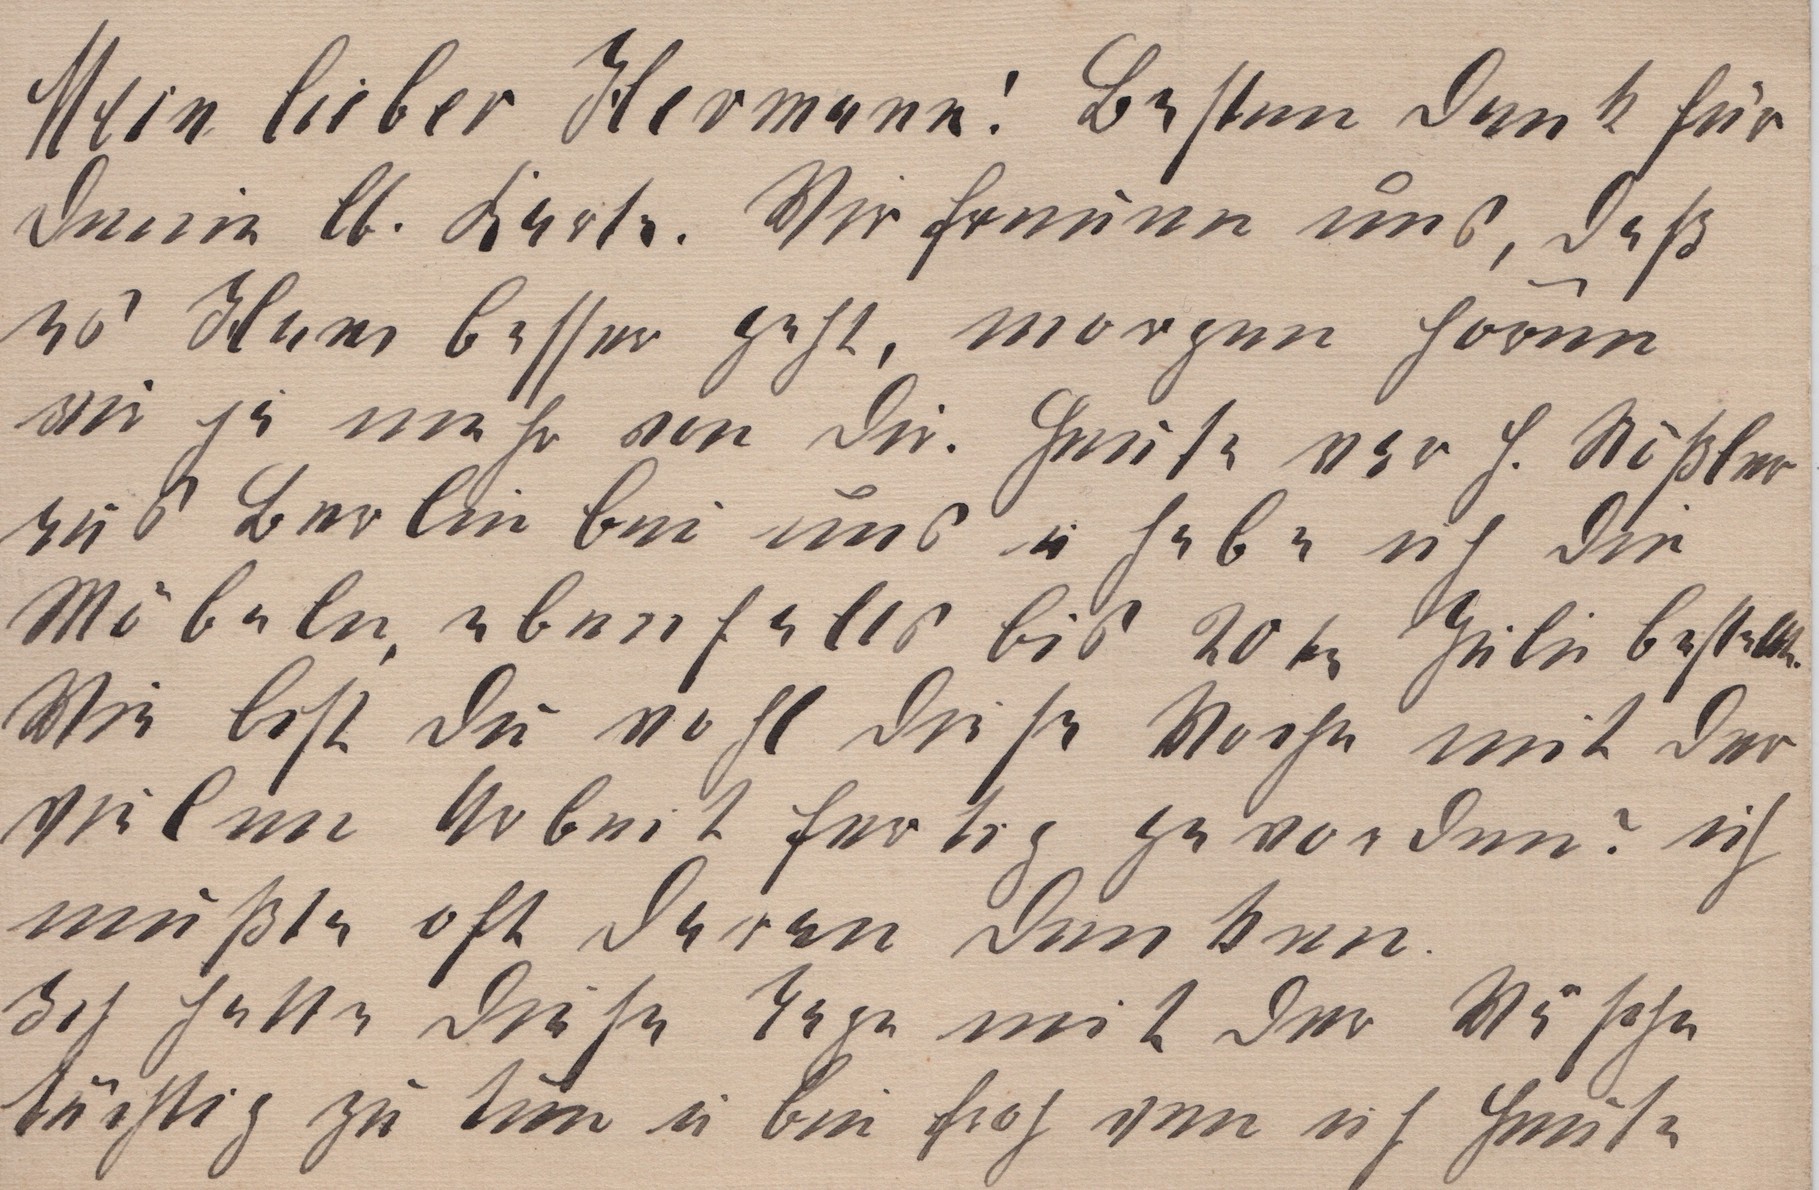 Mein lieber Hermann! Besten Dank für
Deine lb. Karte. Wir freuen uns, daß
es Hans besser geht, morgen hören
wir ja mehr von Dir. Heute war H. Rößler
aus Berlin bei uns u habe ich die
Möbeln, ebenfalls bis 20te Juli bestellt.
Wie bist Du wohl diese Woche mit der
vielen Arbeit fertig geworden? ich
mußte oft daran denken.
Ich hatte diese Tage mit der Wäsche
tüchtig zu tun u bin froh wen ich heute